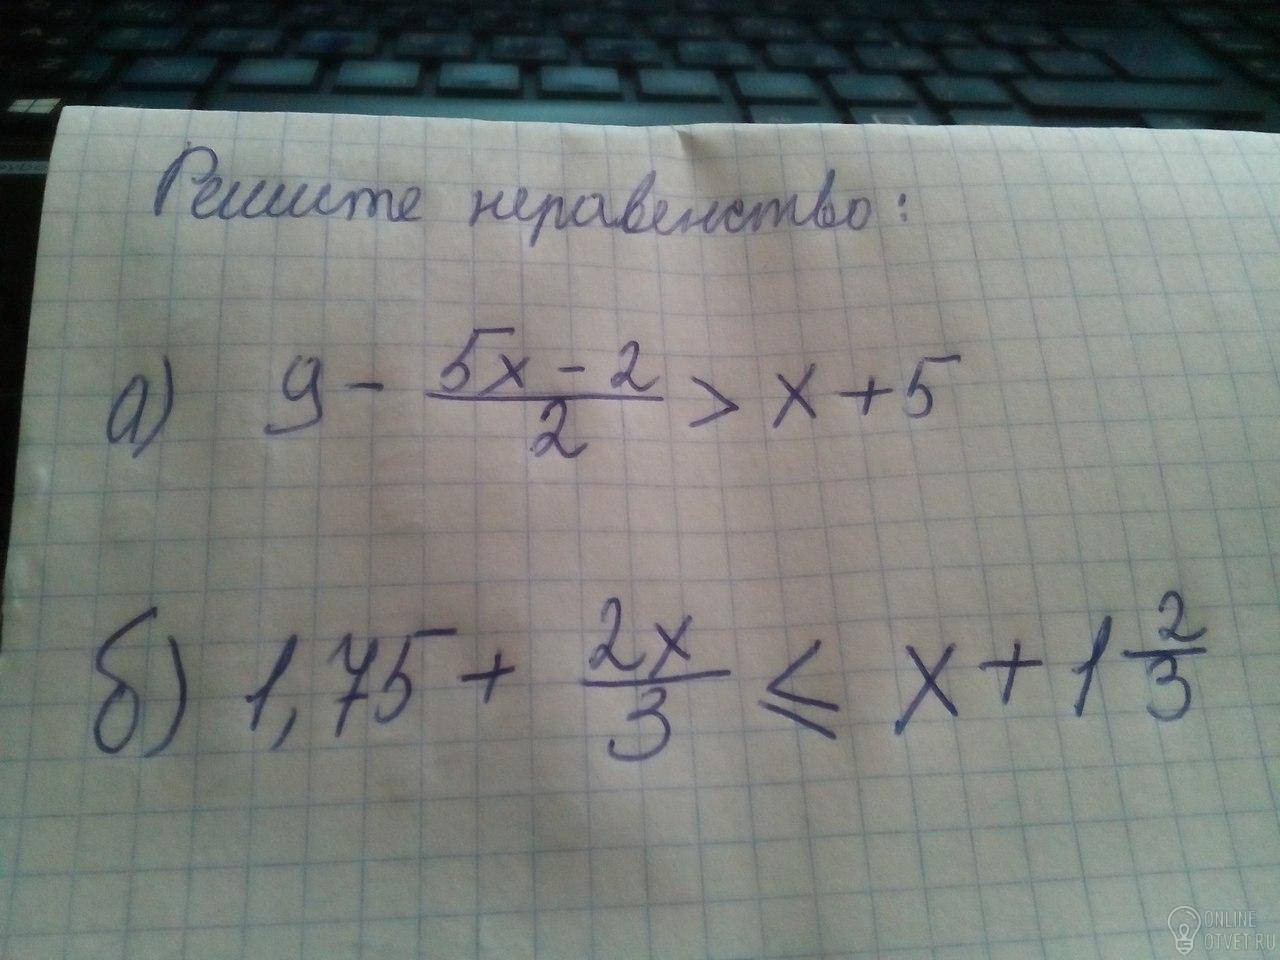 Решите неравенство:
а) 9 - \frac{5x - 2}{2} > x + 5
б) 1,75 + \frac{2x}{3} ≤ x + 1\frac{2}{3}
ONLINE
OTVET.RU